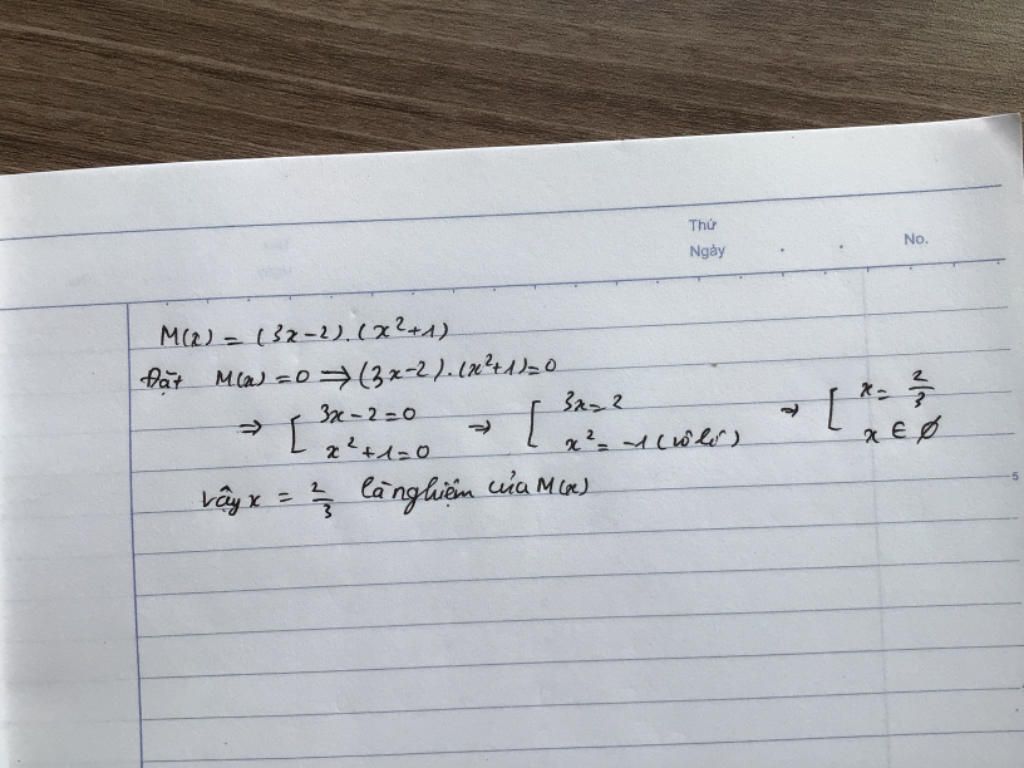 Thứ
Ngày . . No.
M(x) = (3x-2).(x²+1)
Đặt M(x) = 0 ⇒ (3x-2).(x²+1)=0
⇒ [ 3x-2=0 ⇒ [ 3x=2 ⇒ [ x= 2/3
x²+1=0 x²= -1 (vô lí) x ∈ ∅
5
vậy x = 2/3 là nghiệm của M(x)